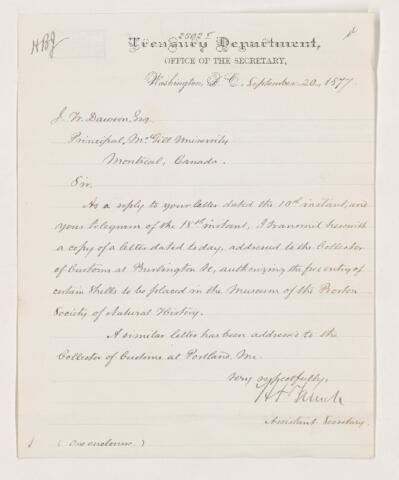 H.B.J.
2802 E
Treasury Department,
OFFICE OF THE SECRETARY,
Washington, D. C. September 20, 1877.
J. W. Dawson, Esq.
Principal, McGill University
Montreal, Canada.
Sir.
As a reply to your letter dated the 10th instant, and
your telegram of the 18th instant, I transmit herewith
a copy of a letter dated to day, addressed to the Collector
of Customs at Burlington Vt, authorizing the free entry of
certain shells to be placed in the Museum of the Boston
Society of Natural History.
A similar letter has been addressed to the
Collector of Customs at Portland, Me.
Very respectfully,
H. F. French
Assistant Secretary.
(One enclosure.)